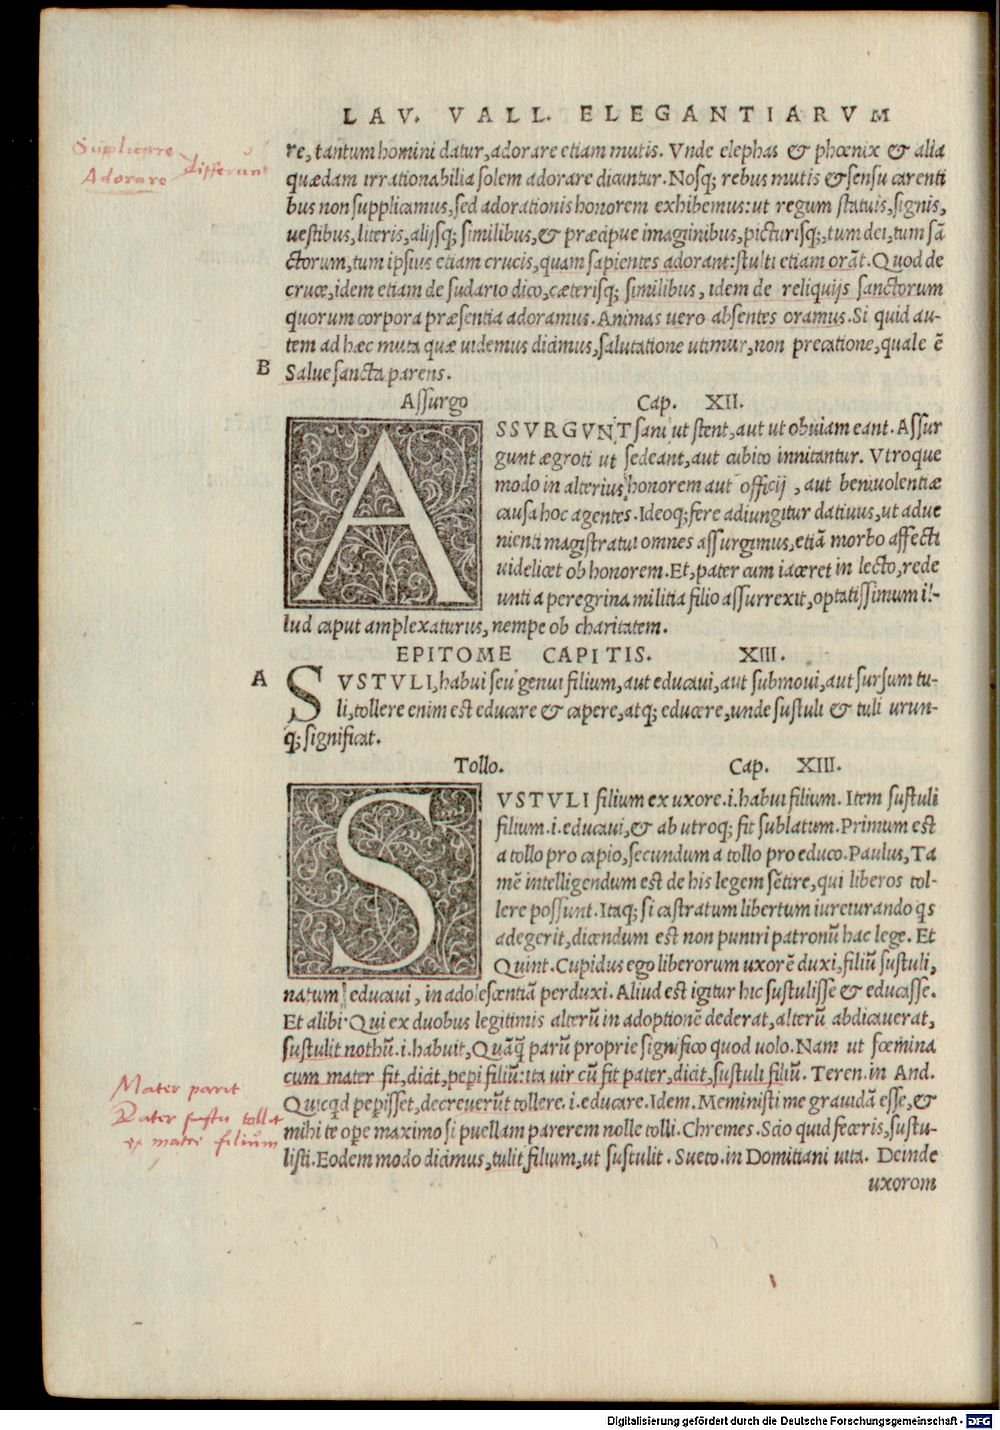 LAV. VALL. ELEGANTIARVM
Suplicare
Adorare
differunt
re, tantum homini datur, adorare etiam mutis. Vnde elephas & phœnix & alia
quædam irrationabilia solem adorare dicuntur. Nosq; rebus mutis & sensu carenti
bus non supplicamus, sed adorationis honorem exhibemus: ut regum statuis, signis,
uestibus, literis, alijsq; similibus, & præcipue imaginibus, picturisq;, tum dei, tum sã
ctorum, tum ipsius etiam crucis, quam sapientes adorant: stulti etiam orãt. Quod de
cruce, idem etiam de sudario dico, cæterisq; similibus, idem de reliquijs sanctorum
quorum corpora præsentia adoramus. Animas uero absentes oramus. Si quid au-
tem ad hæc muta quæ uidemus dicimus, salutatione utimur, non precatione, quale ẽ
B
Salue sancta parens.
Assurgo Cap. XII.
ASSVRGVNT sani ut stent, aut ut obuiam eant. Assur
gunt ægroti ut sedeant, aut cubito innitantur. Vtroque
modo in alterius honorem aut officij, aut beniuolentiæ
causa hoc agentes. Ideoq; fere adiungitur datiuus, ut adue
nienti magistratui omnes assurgimus, etiã morbo affecti
uidelicet ob honorem. Et, pater cum iaceret in lecto, rede
unti a peregrina militia filio assurrexit, optatissimum il-
lud caput amplexaturus, nempe ob charitatem.
EPITOME CAPITIS. XIII.
A
SVSTVLI, habui seu genui filium, aut educaui, aut submoui, aut sursum tu-
li, tollere enim est educare & capere, atq; educere, unde sustuli & tuli utrun-
q; significat.
Tollo. Cap. XIII.
SVSTVLI filium ex uxore .i. habui filium. Item sustuli
filium .i. educaui, & ab utroq; fit sublatum. Primum est
a tollo pro capio, secundum a tollo pro educo. Paulus, Ta
mẽ intelligendum est de his legem sẽtire, qui liberos tol-
lere possunt. Itaq; si castratum libertum iureiurando qs
adegerit, dicendum est non puniri patronũ hac lege. Et
Quint. Cupidus ego liberorum uxorẽ duxi, filiũ sustuli,
natum educaui, in adolescentiã perduxi. Aliud est igitur hic sustulisse & educasse.
Et alibi. Qui ex duobus legitimis alterũ in adoptionẽ dederat, alterũ abdicauerat,
sustulit nothũ .i. habuit, Quãq̃ parũ proprie significo quod uolo. Nam ut fœmina
cum mater fit, dicit, peperi filiũ: ita uir cũ fit pater, dicit, sustuli filiũ. Teren. in And.
Quicqd peperisset, decreuerũt tollere .i. educare. Idem. Meministi me grauidã esse, &
mihi te ope maximo si puellam parerem nolle tolli. Chremes. Scio quid feceris, sustu-
listi. Eodem modo dicimus, tulit filium, ut sustulit. Sueto. in Domitiani uita. Deinde
uxorom
Mater parit
Pater sustu tollit
ex matre filium
Digitalisierung gefördert durch die Deutsche Forschungsgemeinschaft - DFG